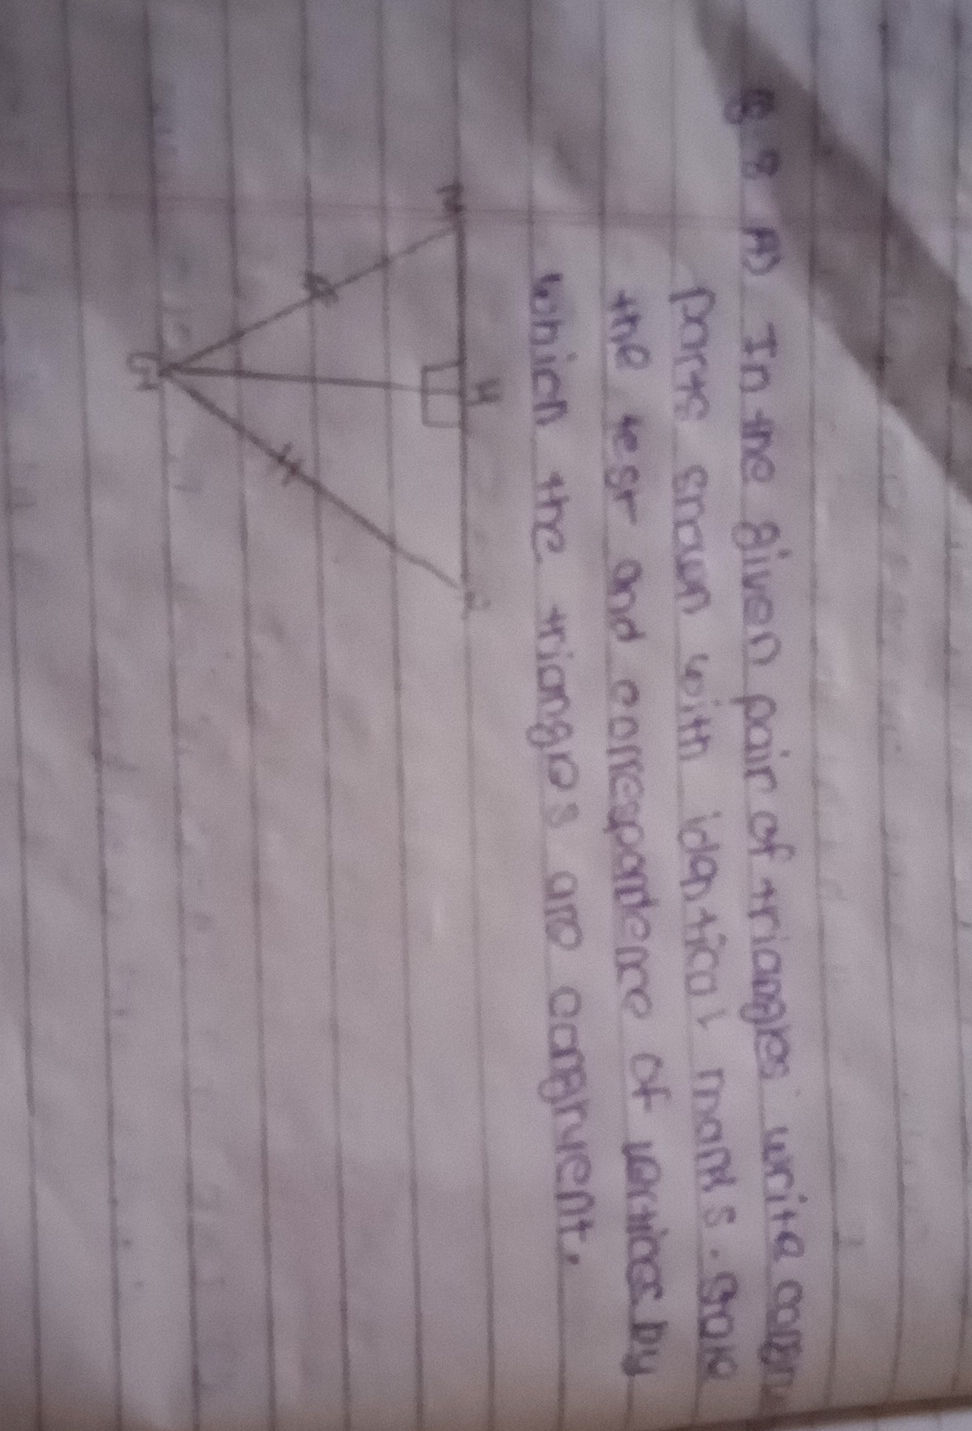 8 A) In the given pair of triangles write congr
parts shown with idantical marks. State
the test and correspondence of vertices by
which the triangles are congruent.
H
G